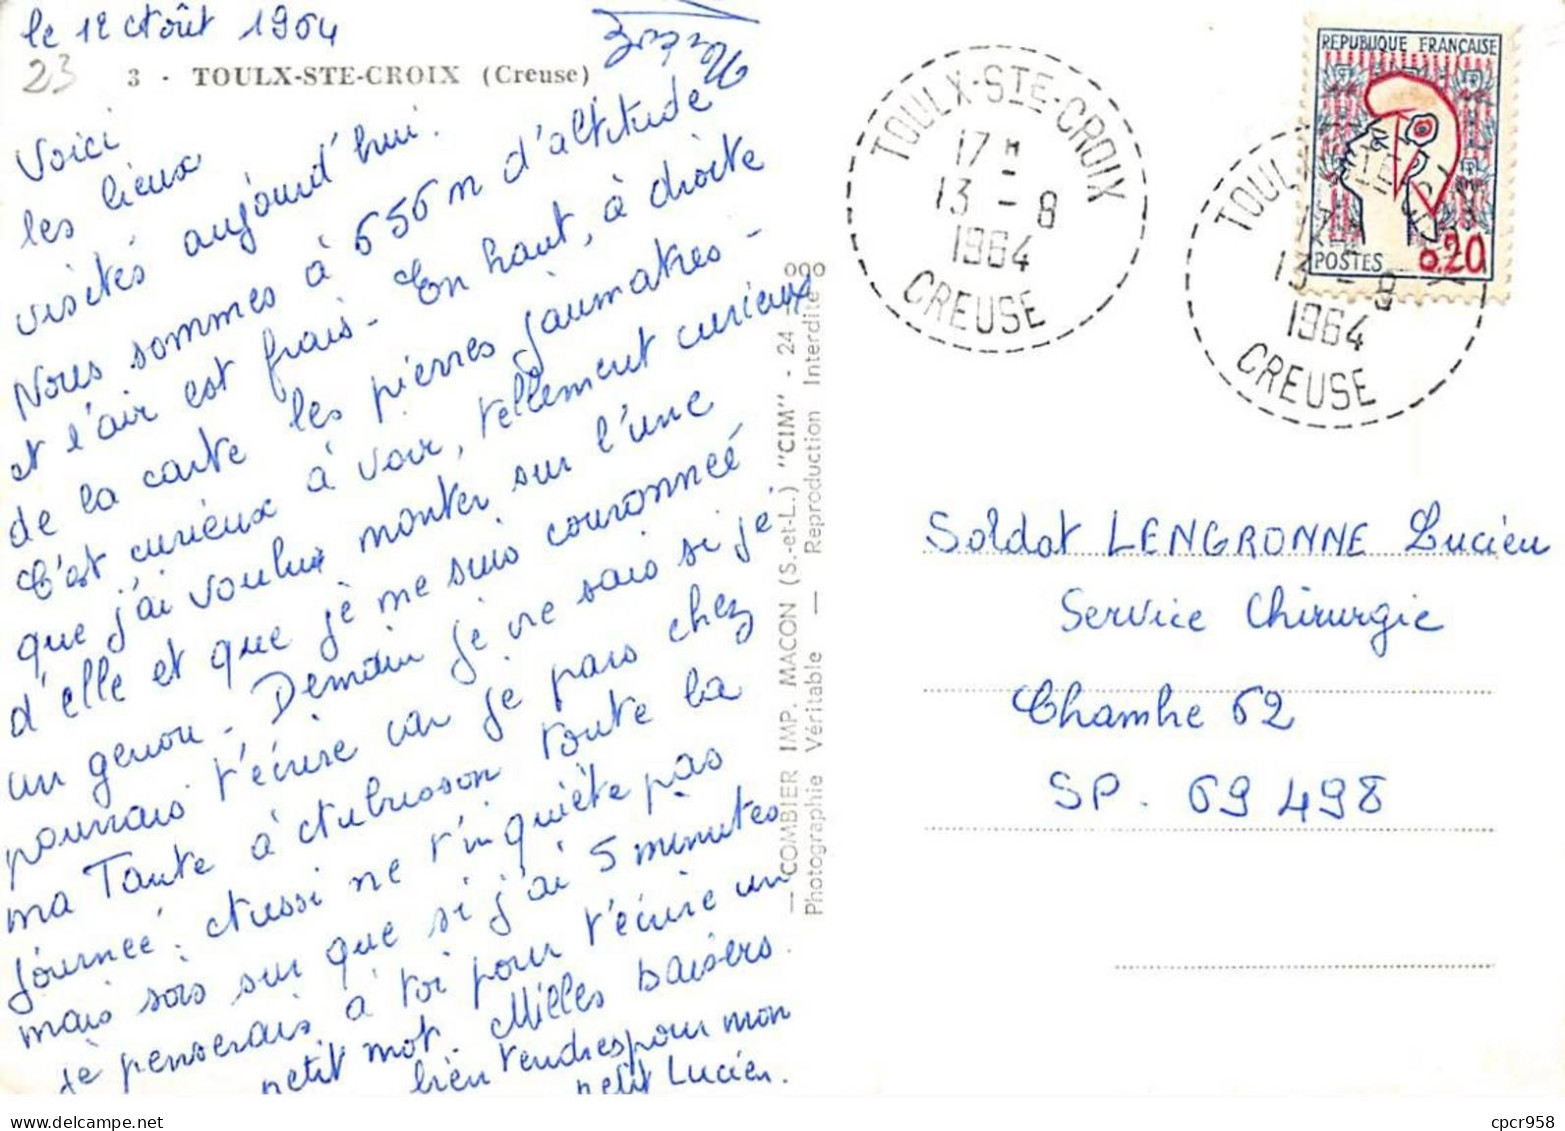 le 12 Août 1964
23
3 - TOULX-STE-CROIX (Creuse)
Voici
les lieux
visités aujourd'hui.
Nous sommes à 656 m d'altitude
et l'air est frais - En haut, à droite
de la carte les pierres jaumatres -
C'est curieux à voir, tellement curieux
que j'ai voulu monter sur l'une
d'elle et que je me suis couronnée
un genou - Demain je ne sais si je
pourrais t'écrire car je pars chez
ma Tante à Aubusson toute la
journée. Aussi ne t'inquiète pas
mais sois sur que si j'ai 5 minutes
je penserais à toi pour t'écrire un
petit mot. Milles baisers.
bien tendres pour mon
petit Lucien.
— COMBIER IMP. MACON (S.-et-L.) "CIM" - 24
Photographie Véritable — Reproduction Interdite
TOULX-STE-CROIX
17 H
13 - 8
1964
CREUSE
REPUBLIQUE FRANÇAISE
POSTES 0,20
13 - 8
1964
CREUSE
Soldat LENGRONNE Lucien
Service Chirurgie
Chambre 62
SP. 69 498
cpcr958